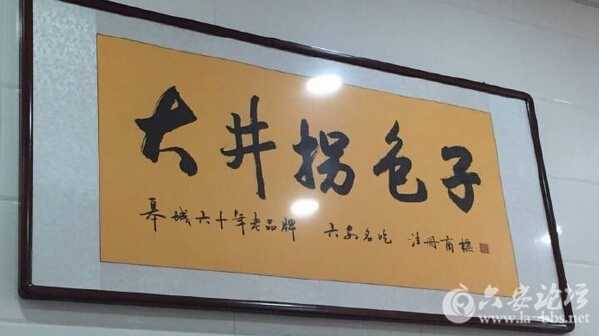 大井拐包子
皋城六十年老品牌 六安名吃 注册商標
六安论坛
www.la-bbs.net